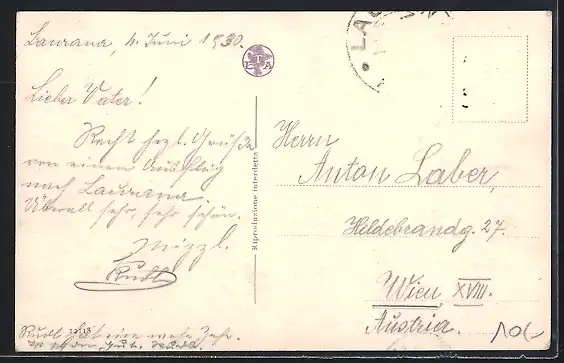 Laurana, 4. Juni 1930.
Lieber Vater!
Recht hrzl. Grüße
von einem Ausflug
nach Laurana.
Überall sehr, sehr schön.
Mizzl.
Rudl
Rudl hat eine
Riproduzione interdetta
Herrn
Anton Laber,
Hildebrandg. 27.
Wien, XVIII.
Austria.